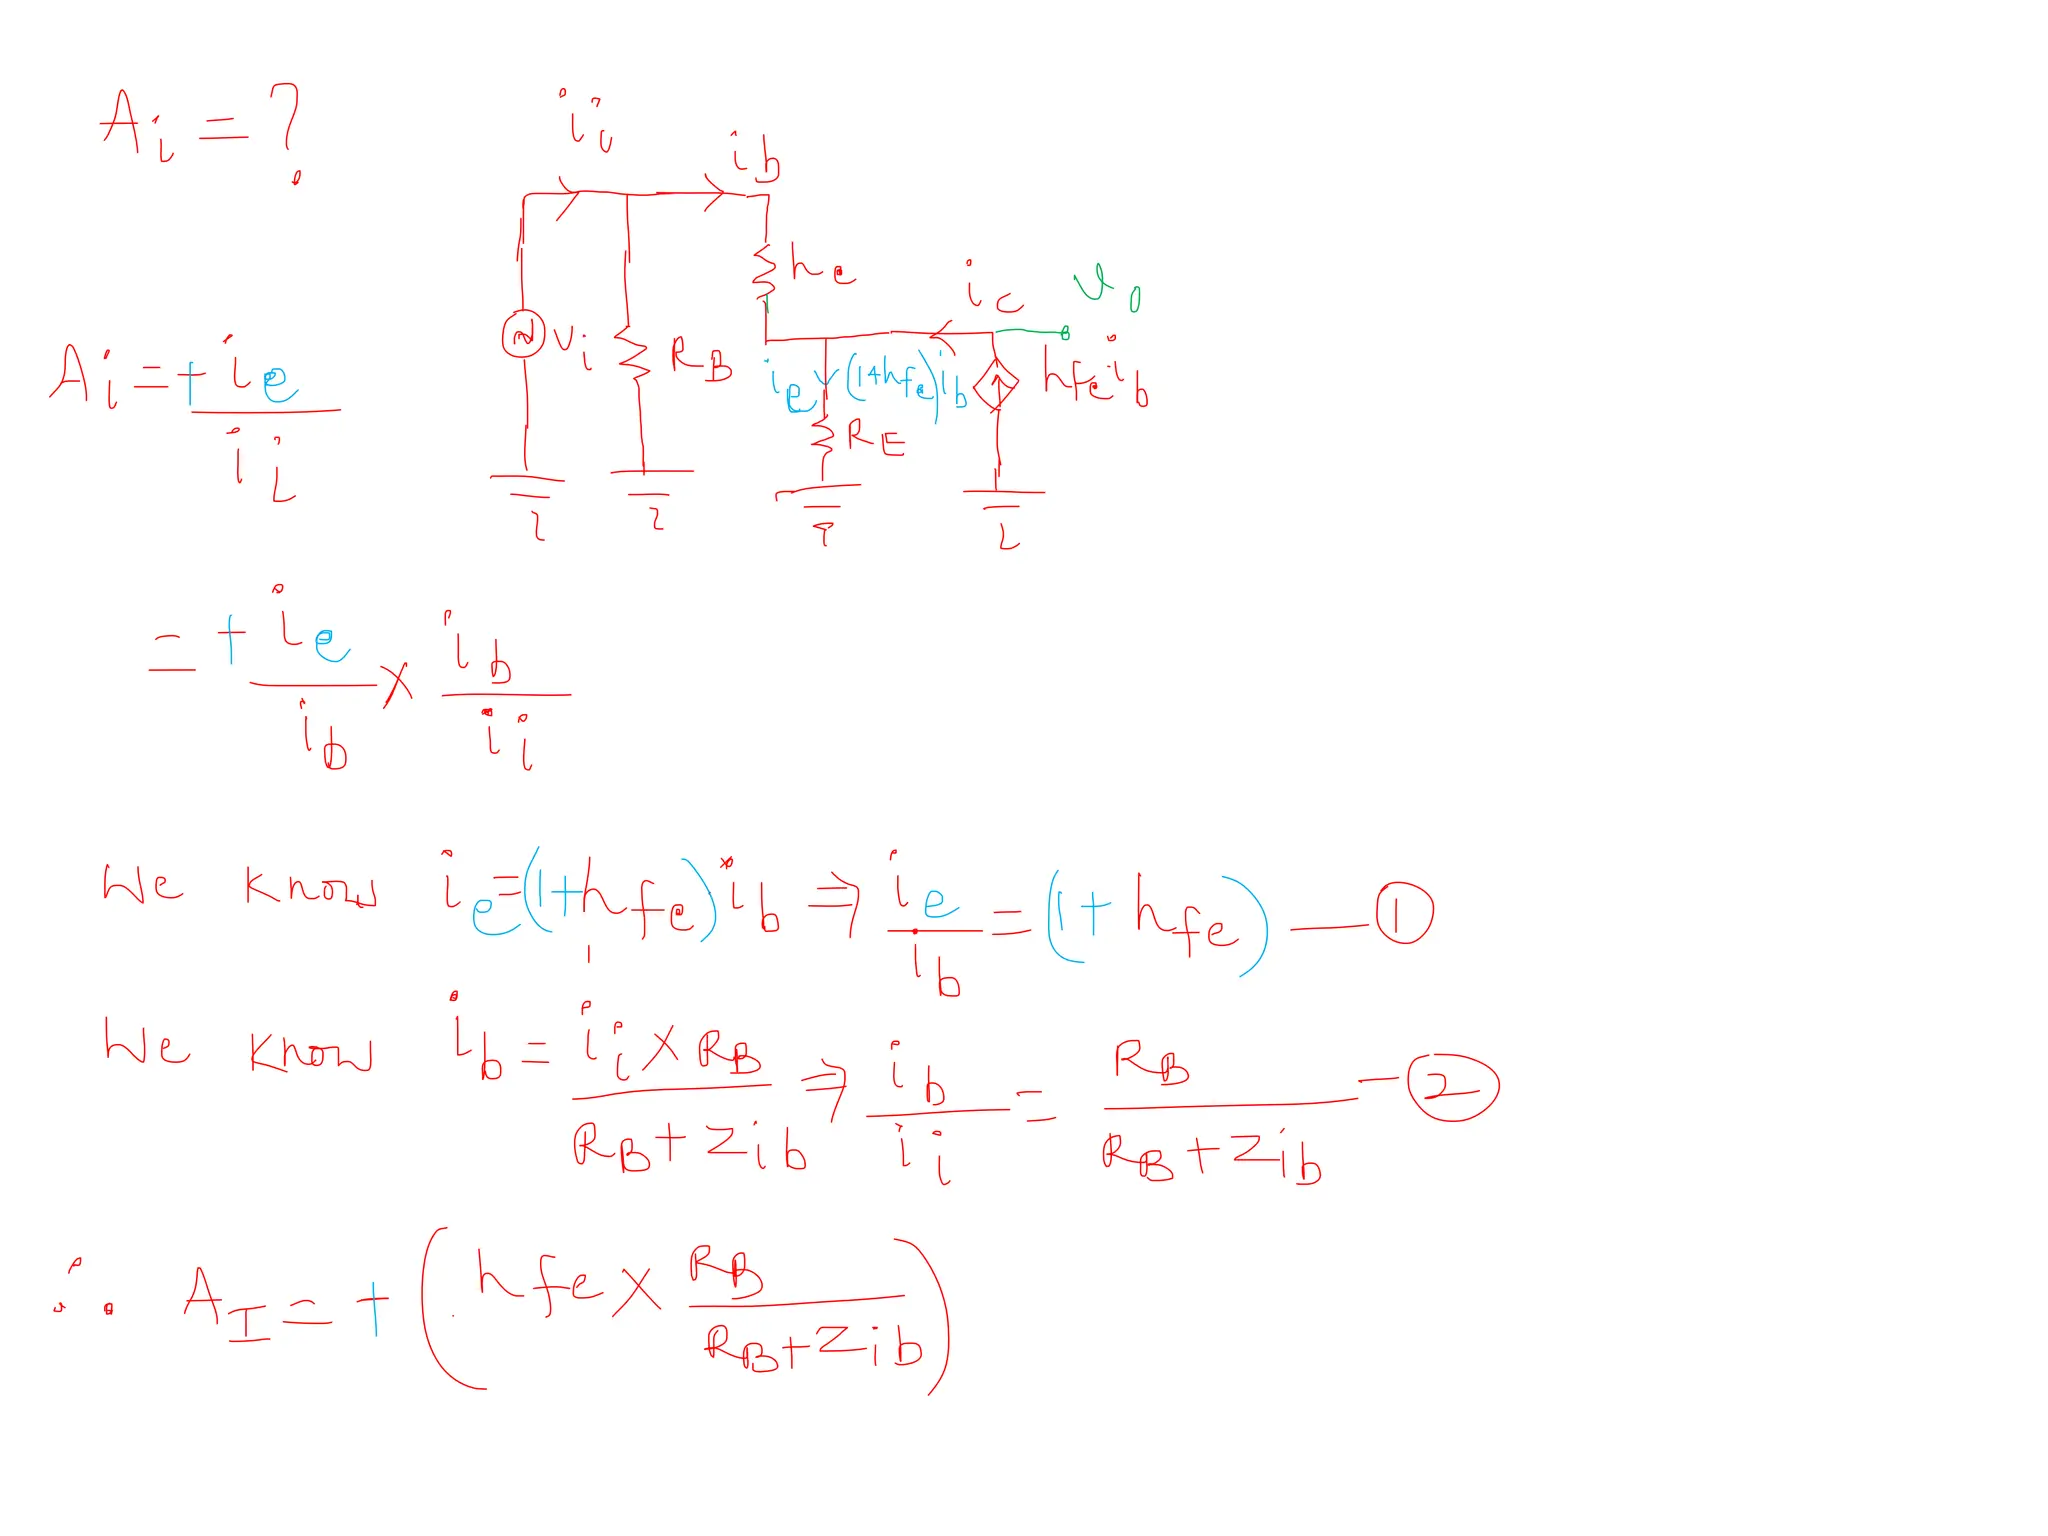 A_i = ?
i_i
i_b
h_e
i_c
v_o
v_i
R_B
i_e
(1+h_fe)i_b
h_fe i_b
R_E
A_i = + i_e / i_i
= + i_e / i_b × i_b / i_i
We know i_e = (1+h_fe) i_b ⇒ i_e / i_b = (1+h_fe) — ①
We know i_b = i_i × R_B / R_B + Z_ib ⇒ i_b / i_i = R_B / R_B + Z_ib — ②
∴ A_I = + ( h_fe × R_B / R_B + Z_ib )